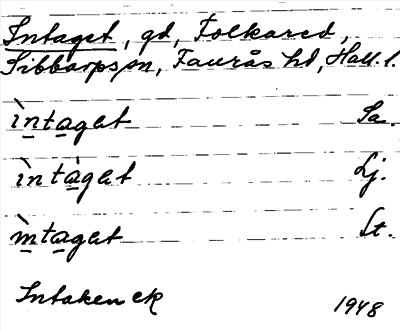 Intaget, gd, Folkared,
Sibbarps sn, Faurås hd, Hall. l.
ìntaget Sa.
ìntàget Lj.
ìntaget St.
Intaken ek
1948